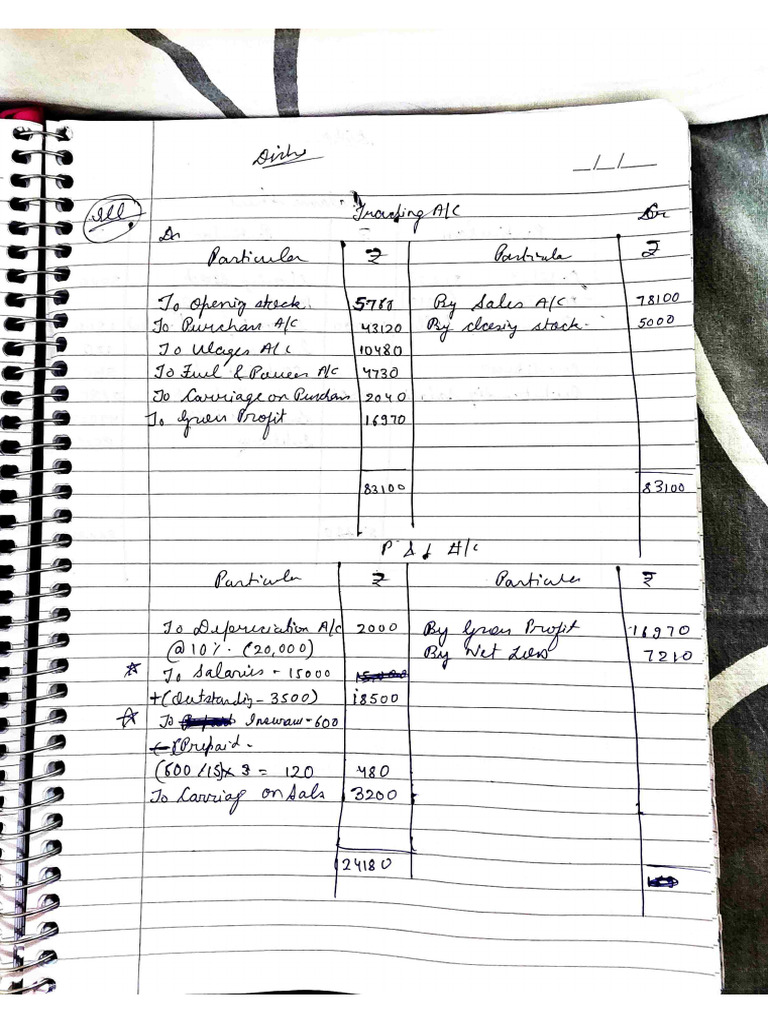 _/_/__
Ill.
Trading A/C
Dr
Particular ₹ Particula ₹
To Openig stock. 5760 By Sales A/C 78100
To Purchan A/C 43120 By closig stock. 5000
To Wages A/C 10480
To Fuel & Power A/C 4730
To Carriage on Purchas 2040
To Gross Profit 16970
83100 83100
P & L A/c
Particular ₹ Particular ₹
To Depreciation A/C 2000 By Gross Profit 16970
@ 10%. (20,000) By Net Loss 7210
To Salaries - 15000
+(Outstandig - 3500) 18500
To Insuran - 600
(-)(Prepaid -
(600/15)x 3 = 120 480
To Carriag on Sals 3200
24180